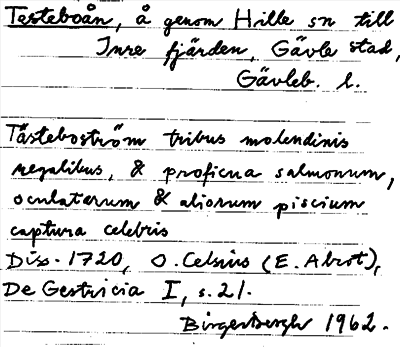 Testeboån, å genom Hille sn till
Inre fjärden, Gävle stad,
Gävleb. l.
Tästeboström tribus molendinis
regalibus, & proficua salmonum,
oculatarum & aliorum piscium
captura celebris
Diss. 1720, O. Celsius (E. Abrot),
De Gestricia I, s. 21.
Birger Bergh 1962.